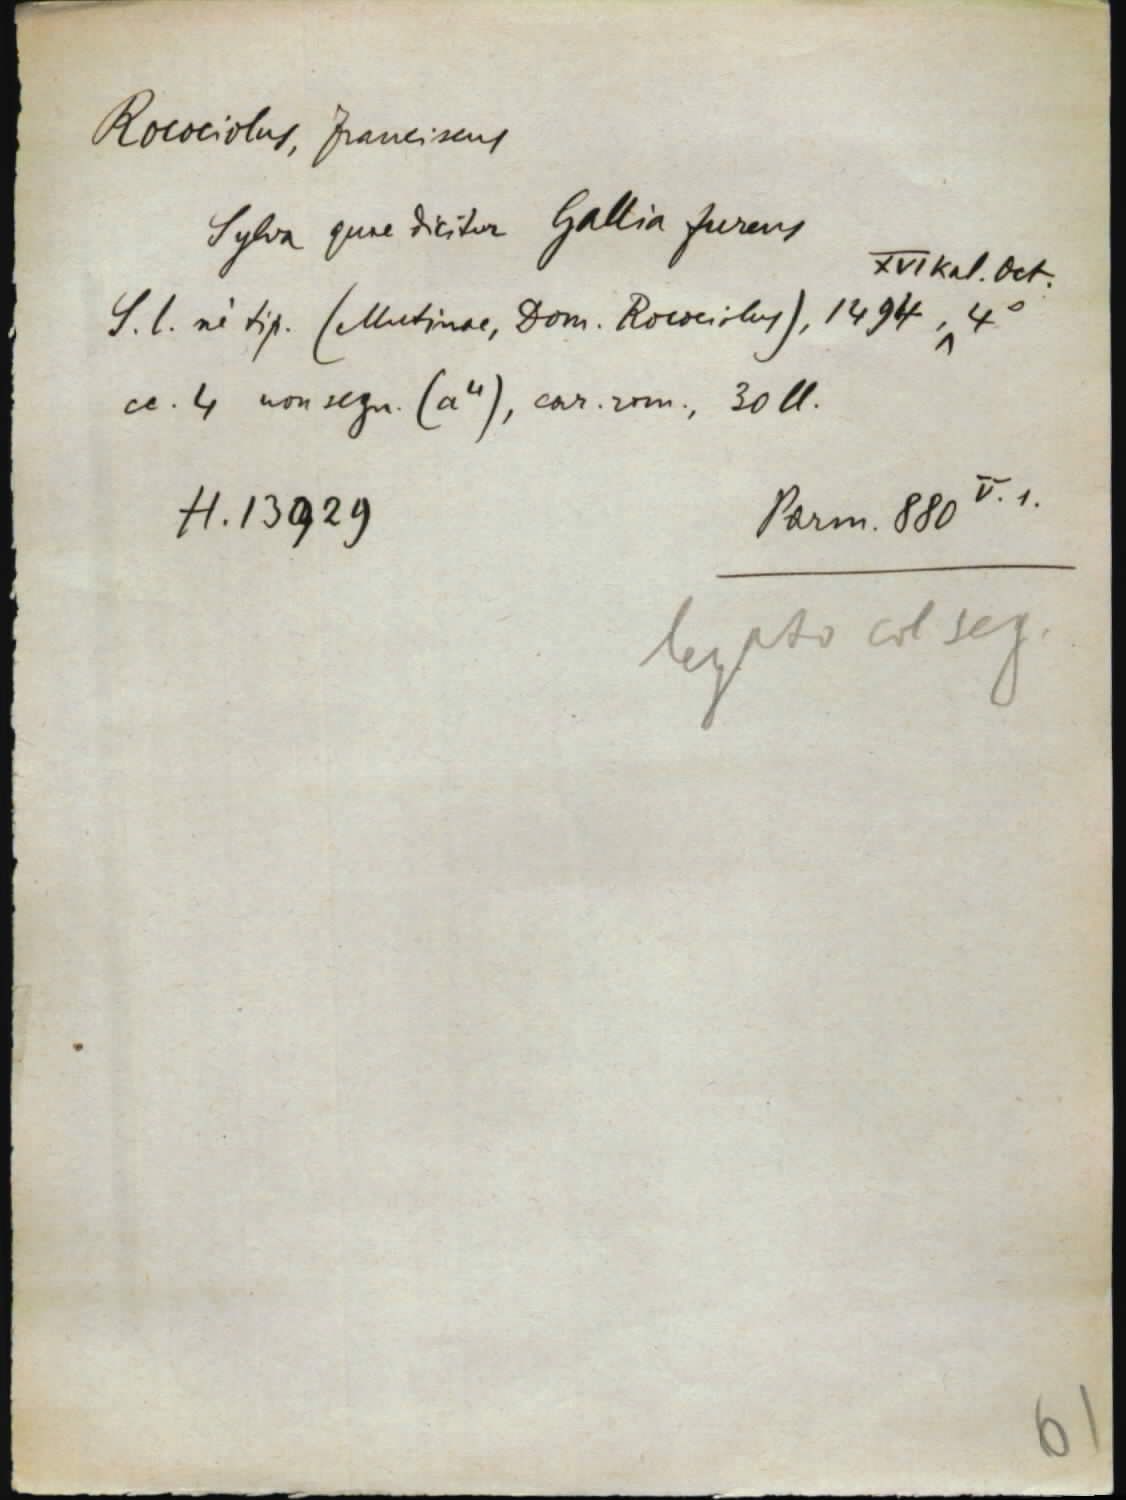 Rococciolus, Franciscus
Sylva quae dicitur Gallia furens
XVI kal. Oct.
S. l. né tip. (Mutinae, Dom. Rococciolus), 1494, ^ 4°
cc. 4 non segn. (a⁴), car. rom., 30 ll.
H. 13929
Parm. 880 V. 1.
leg.to col seg.
61